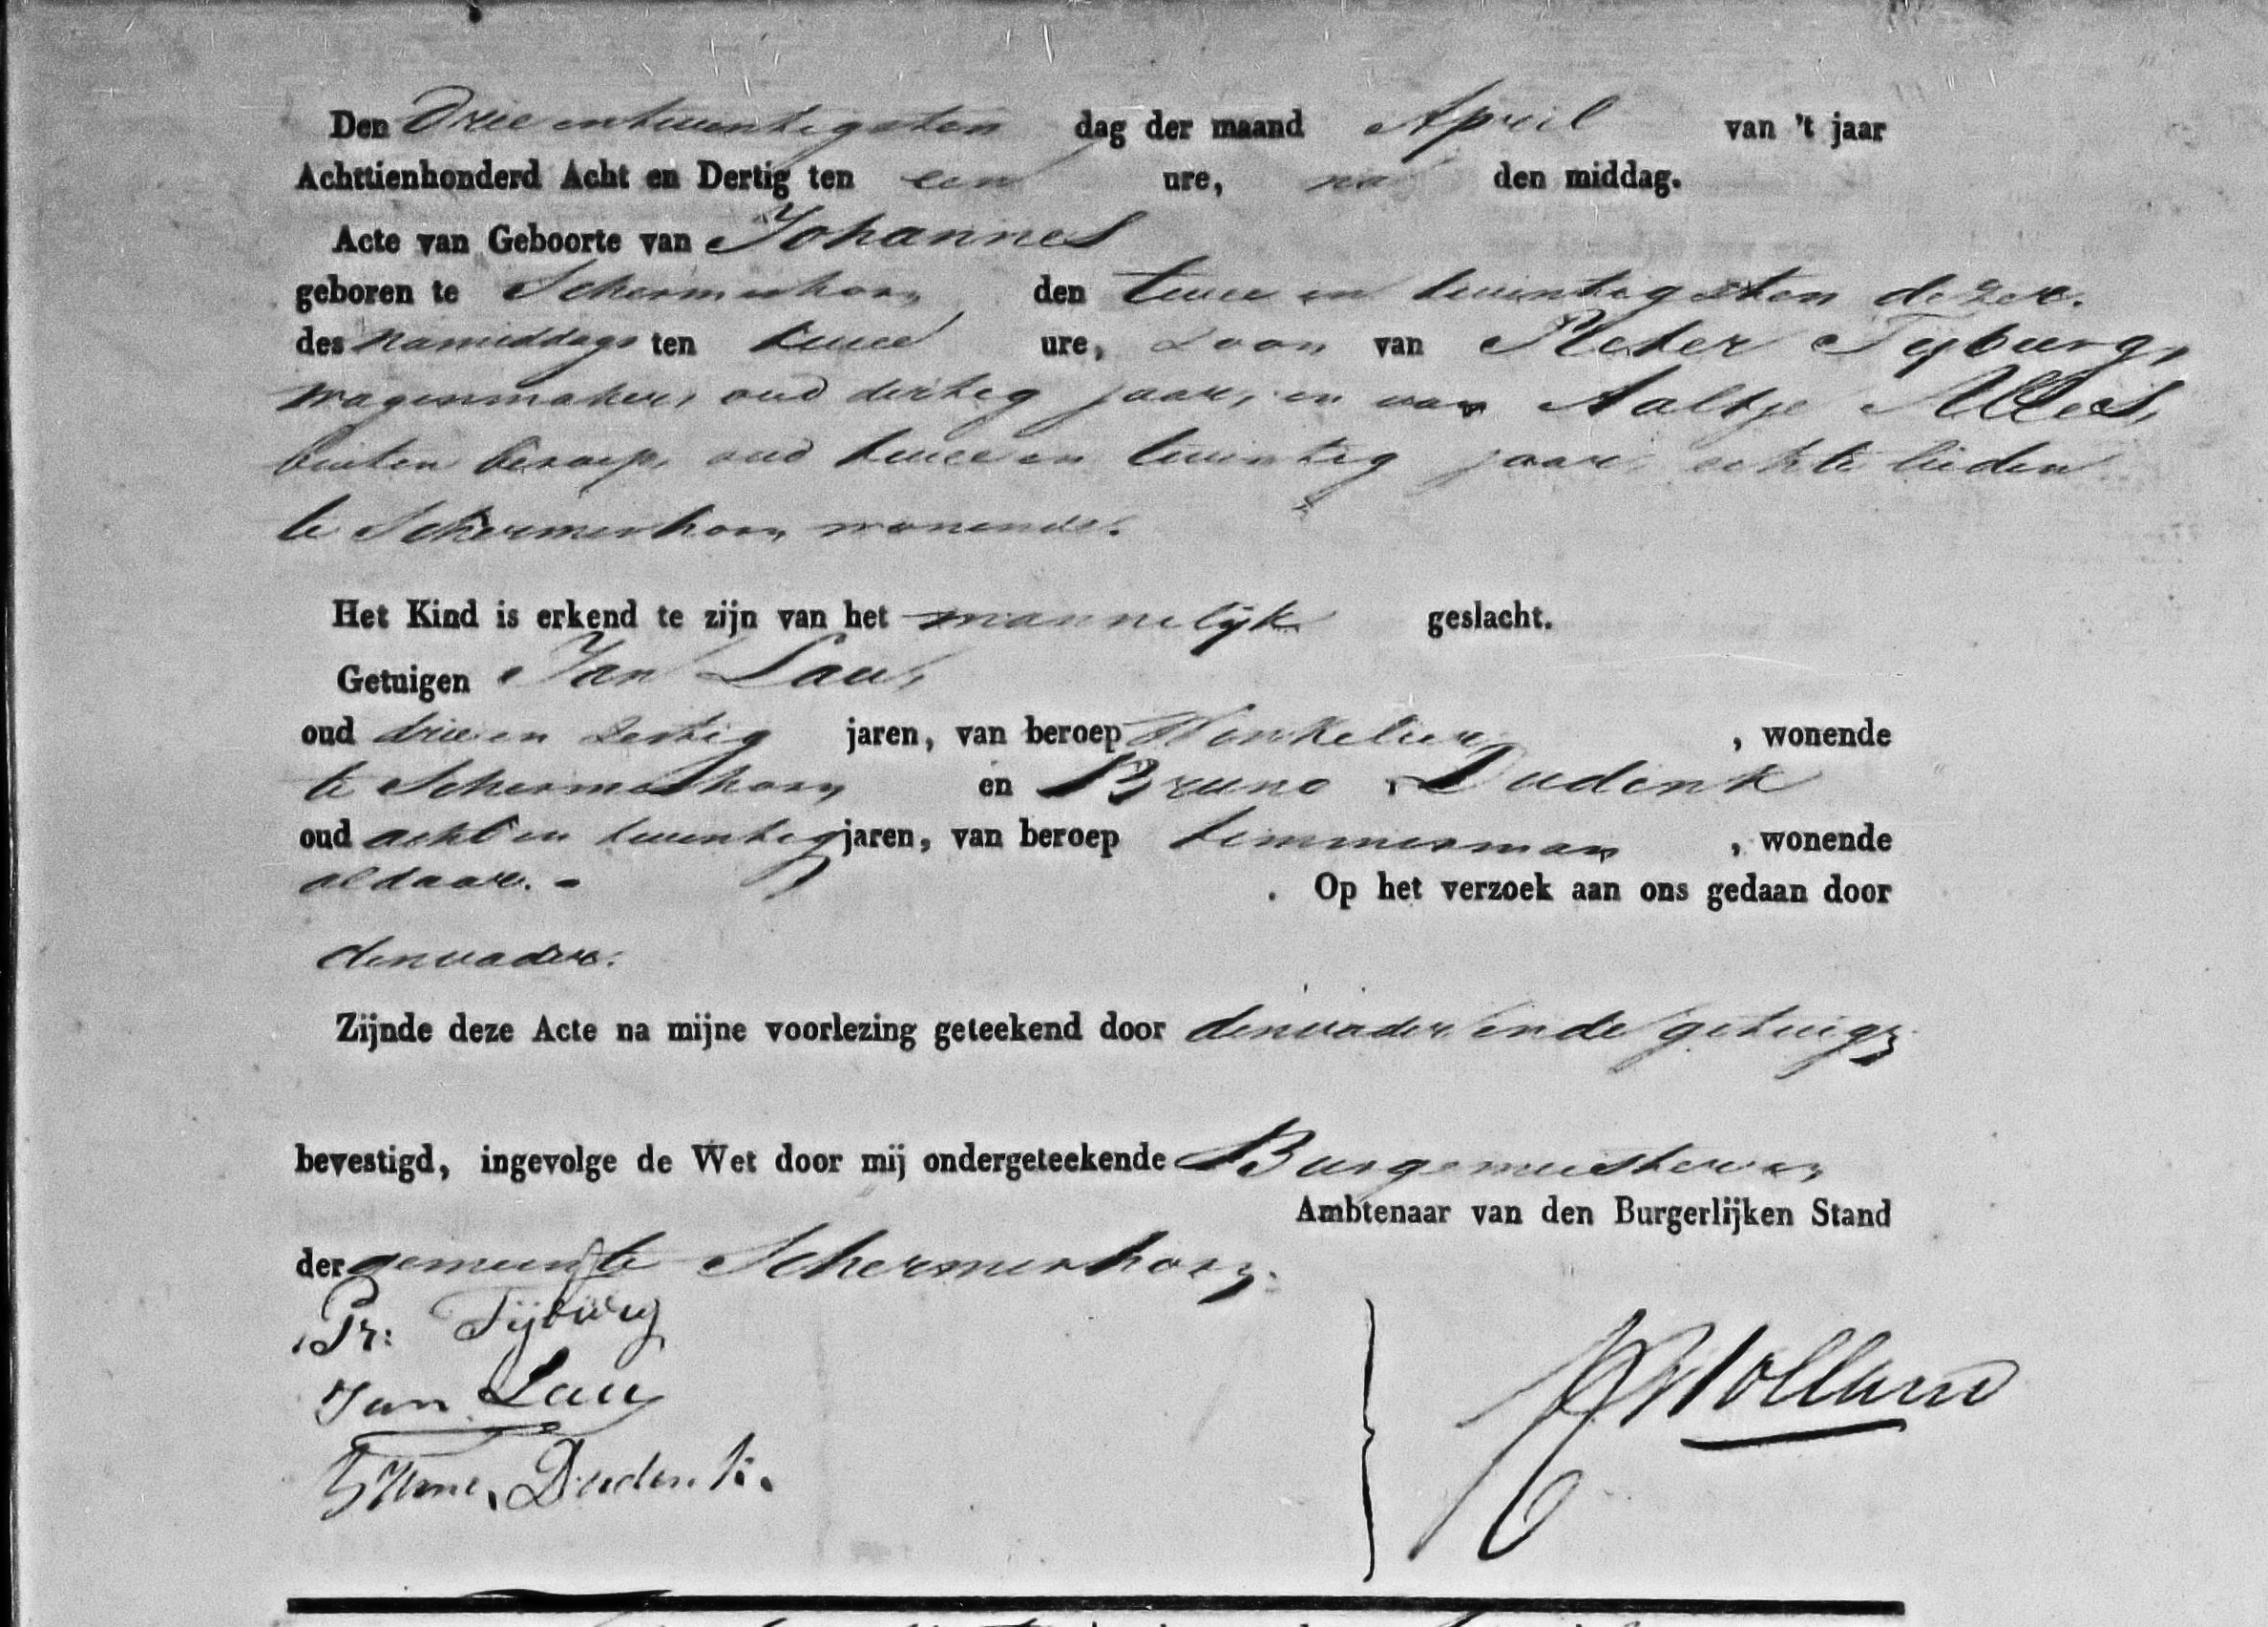 Den Drie entwentigsten dag der maand April van 't jaar
Achttienhonderd Acht en Dertig ten een ure, na den middag.
Acte van Geboorte van Johannes
geboren te Schermerhorn den twee en twintigsten dezer.
des namiddags ten twee ure, Zoon van Pieter Tijburg,
wagenmaker, oud dertig jaar, en van Aaltje
buiten beroep, oud twee en twintig jaar, echte lieden
te Schermerhorn wonende.
Het Kind is erkend te zijn van het mannelijk geslacht.
Getuigen Jan Lau,
oud drie en zestig jaren, van beroep Winkelier, wonende
te Schermerhorn en Bruno Dudenk
oud acht en twintig jaren, van beroep timmerman, wonende
aldaar. - . Op het verzoek aan ons gedaan door
den vader.
Zijnde deze Acte na mijne voorlezing geteekend door den vader en de getuigen
bevestigd, ingevolge de Wet door mij ondergeteekende Burgemeester en
Ambtenaar van den Burgerlijken Stand
der gemeente Schermerhorn.
Pr: Tijburg
Jan Lau
Dudenk.
Holland